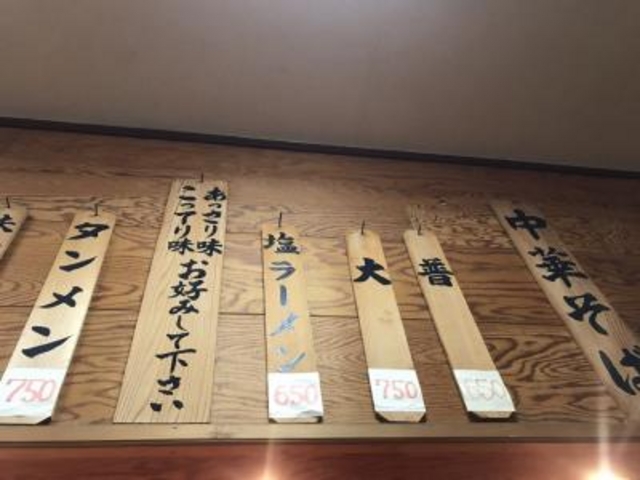 中華そば
普
650
大
750
塩ラーメン
650
あっさり味
こってり味
お好みして下さい
タンメン
750